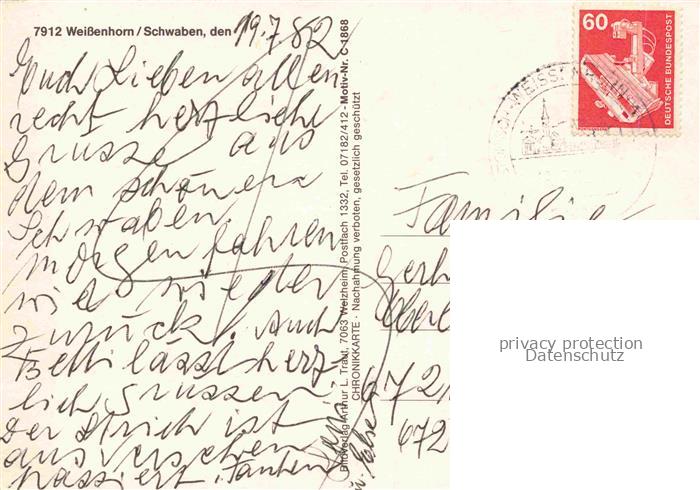 7912 Weißenhorn / Schwaben, den 19.7.82
Euch Lieben allen
recht herzliche
Grüsse aus
dem schönen
Schwaben.
Morgen fahren
wir wieder
zurück. Auch
Betti lässt herz-
lich Grüssen
Der Strich ist
aus versehen
passiert. Tanten
Bildverlag Arthur L. Traut, 7063 Welzheim, Postfach 1332, Tel. 07182/412 - Motiv-Nr. C 1868
CHRONIKKARTE - Nachahmung verboten, gesetzlich geschützt
60
DEUTSCHE BUNDESPOST
Familie
Gerh
672
privacy protection
Datenschutz